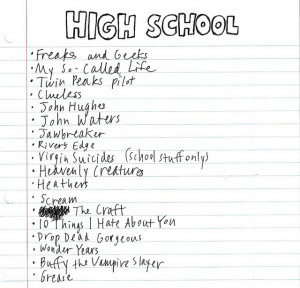 HIGH SCHOOL
• Freaks and Geeks
• My So-Called Life
• Twin Peaks pilot
• Clueless
• John Hughes
• John Waters
• Jawbreaker
• River's Edge
• Virgin Suicides (school stuff only)
• Heavenly Creatures
• Heathers
• Scream
• The Craft
• 10 Things I Hate About You
• Drop Dead Gorgeous
• Wonder Years
• Buffy the Vampire Slayer
• Grease